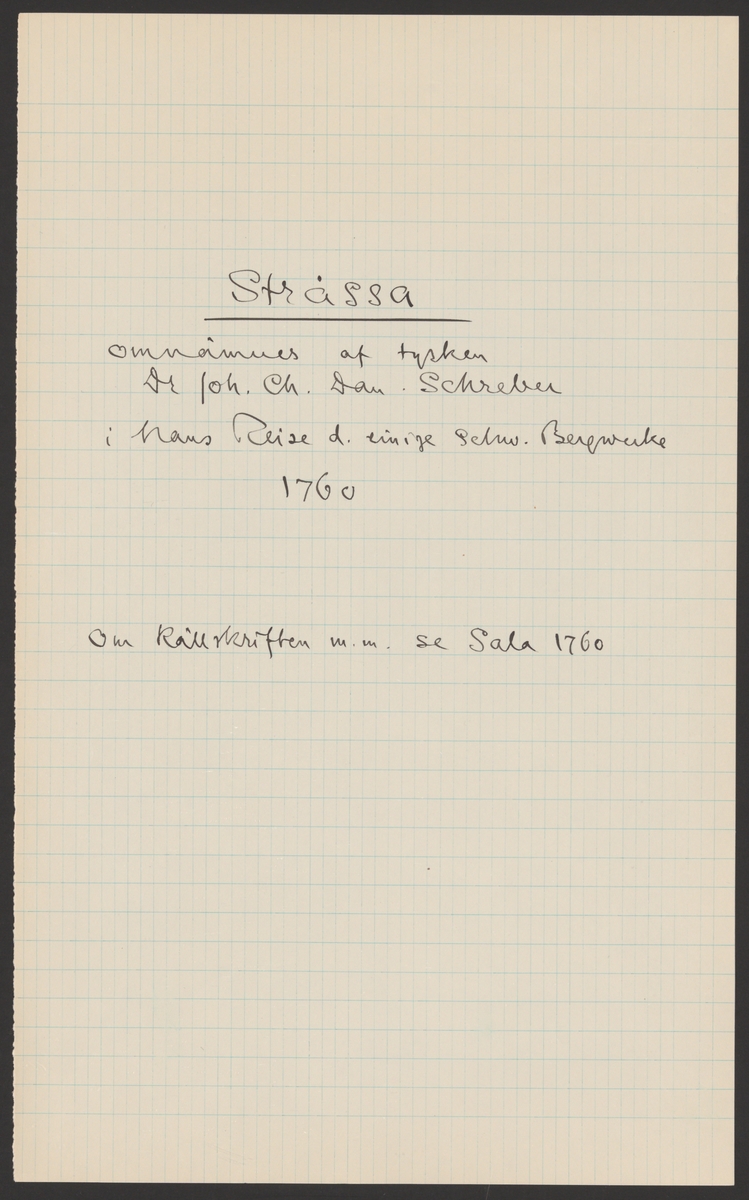 Stråssa
omnämnes af tysken
Dr Joh. Ch. Dan. Schreber
i hans Reise d. einige Schw. Bergwerke
1760
Om Källskriften m.m. se Sala 1760